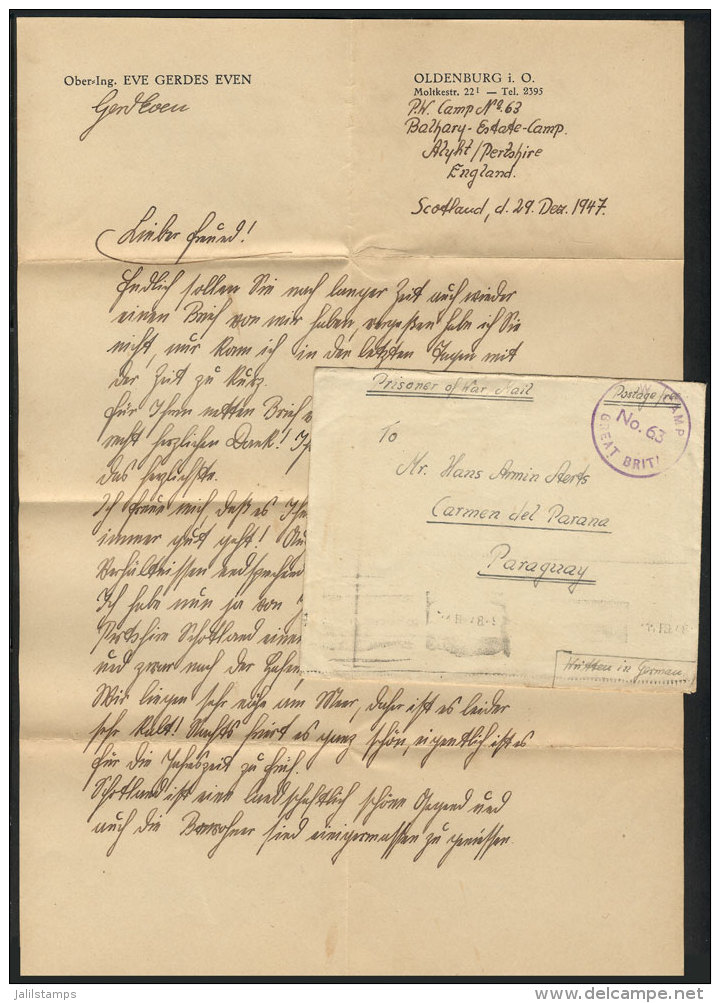 Ober-Ing. EVE GERDES EVEN
Gerd Even
OLDENBURG i. O.
Moltkestr. 22¹ — Tel. 2395
P.W. Camp Nº 63
Balhary-Estate-Camp.
Alykt/Pertshire
England.
Scotland, d. 29. Dez. 1947.
Lieber Freund!
Endlich sollen Sie nach langer Zeit auch wieder
einen Brief von mir haben, vergeßen habe ich Sie
nicht, nur kam ich in den letzten Tagen mit
der Zeit zu kurz.
Für Ihren netten Brief
recht herzlichen Dank!
das herzlichste.
Ich freue mich daß es
immer gut geht!
Verhältnissen entsprechend
Ich habe nun ja von
Pertshire Schotland einen
und zwar nach der
Wir liegen sehr nahe am Meer, daher ist es leider
sehr kalt! Nachts friert es ganz schön, eigentlich ist es
für die Jahreszeit zu früh.
Schotland ist eine landschaftlich schöne Gegend und
auch die Bewohner sind einigermassen zu geniessen.
Prisoner of War Mail
Postage free
CAMP
No. 63
GREAT BRIT
To
Mr. Hans Armin Aerts
Carmen del Parana
Paraguay
Written in German
jalilstamps
www.delcampe.net